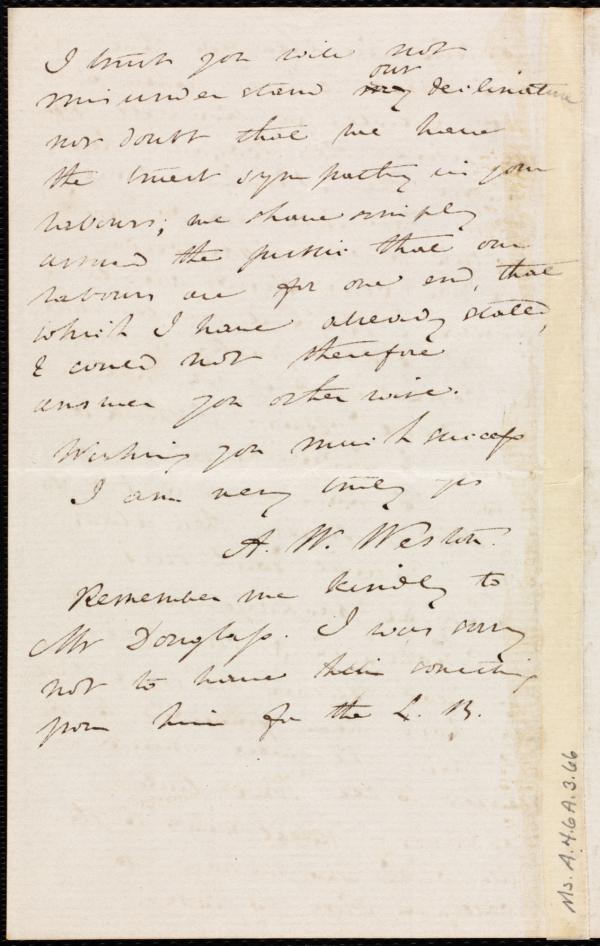 I trust you will not
misunderstand our declinature
nor doubt that we have
the truest sympathy in your
labours; we have simply
assured the public that our
labours are for one end, that
which I have already stated,
& could not therefore
answer you otherwise.
Wishing you much success
I am very truly yrs
A. W. Weston.
Remember me kindly to
Mr Douglass. I was sorry
not to have had something
from him for the L. B.
Ms. A.4.6A.3.66